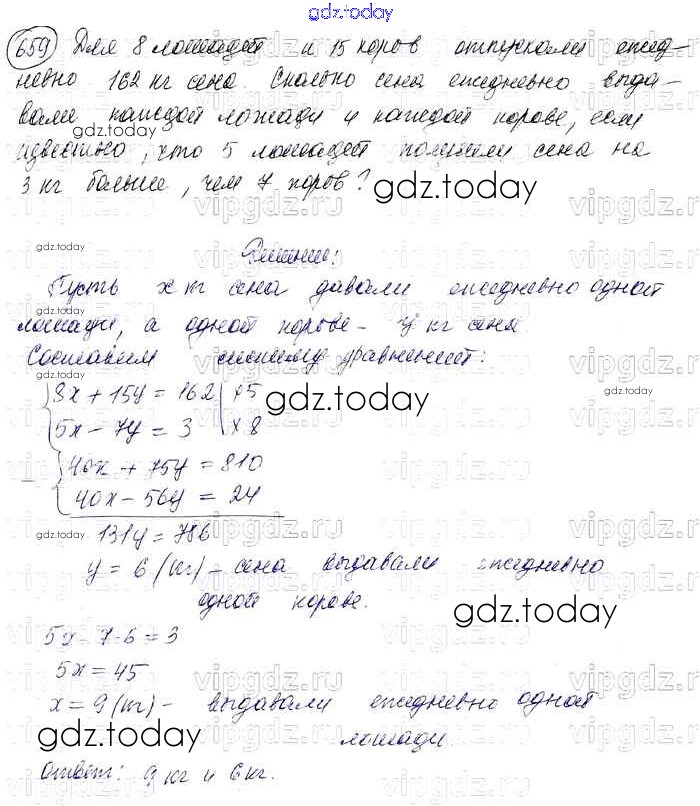 gdz.today
659 Для 8 лошадей и 15 коров отпускали ежед-
невно 162 кг сена. Сколько сена ежедневно выда-
вали каждой лошади и каждой корове, если
gdz.today
известно, что 5 лошадей получали сена на
3 кг больше, чем 7 коров?
gdz.today
gdz.today
Решение:
Пусть x кг сена давали ежедневно одной
лошади, а одной корове - y кг сена
Составим систему уравнений:
gdz.today
8x + 15y = 162 | x5
5x - 7y = 3 | x8
gdz.today
gdz.today
40x + 75y = 810
- 40x - 56y = 24
131y = 786
gdz.today
y = 6 (кг) - сена выдавали ежедневно
одной корове.
gdz.today
5x - 7·6 = 3
gdz.today
5x = 45
x = 9 (кг) - выдавали ежедневно одной
лошади
gdz.today
gdz.today
Ответ: 9 кг и 6 кг.
vipgdz.ru